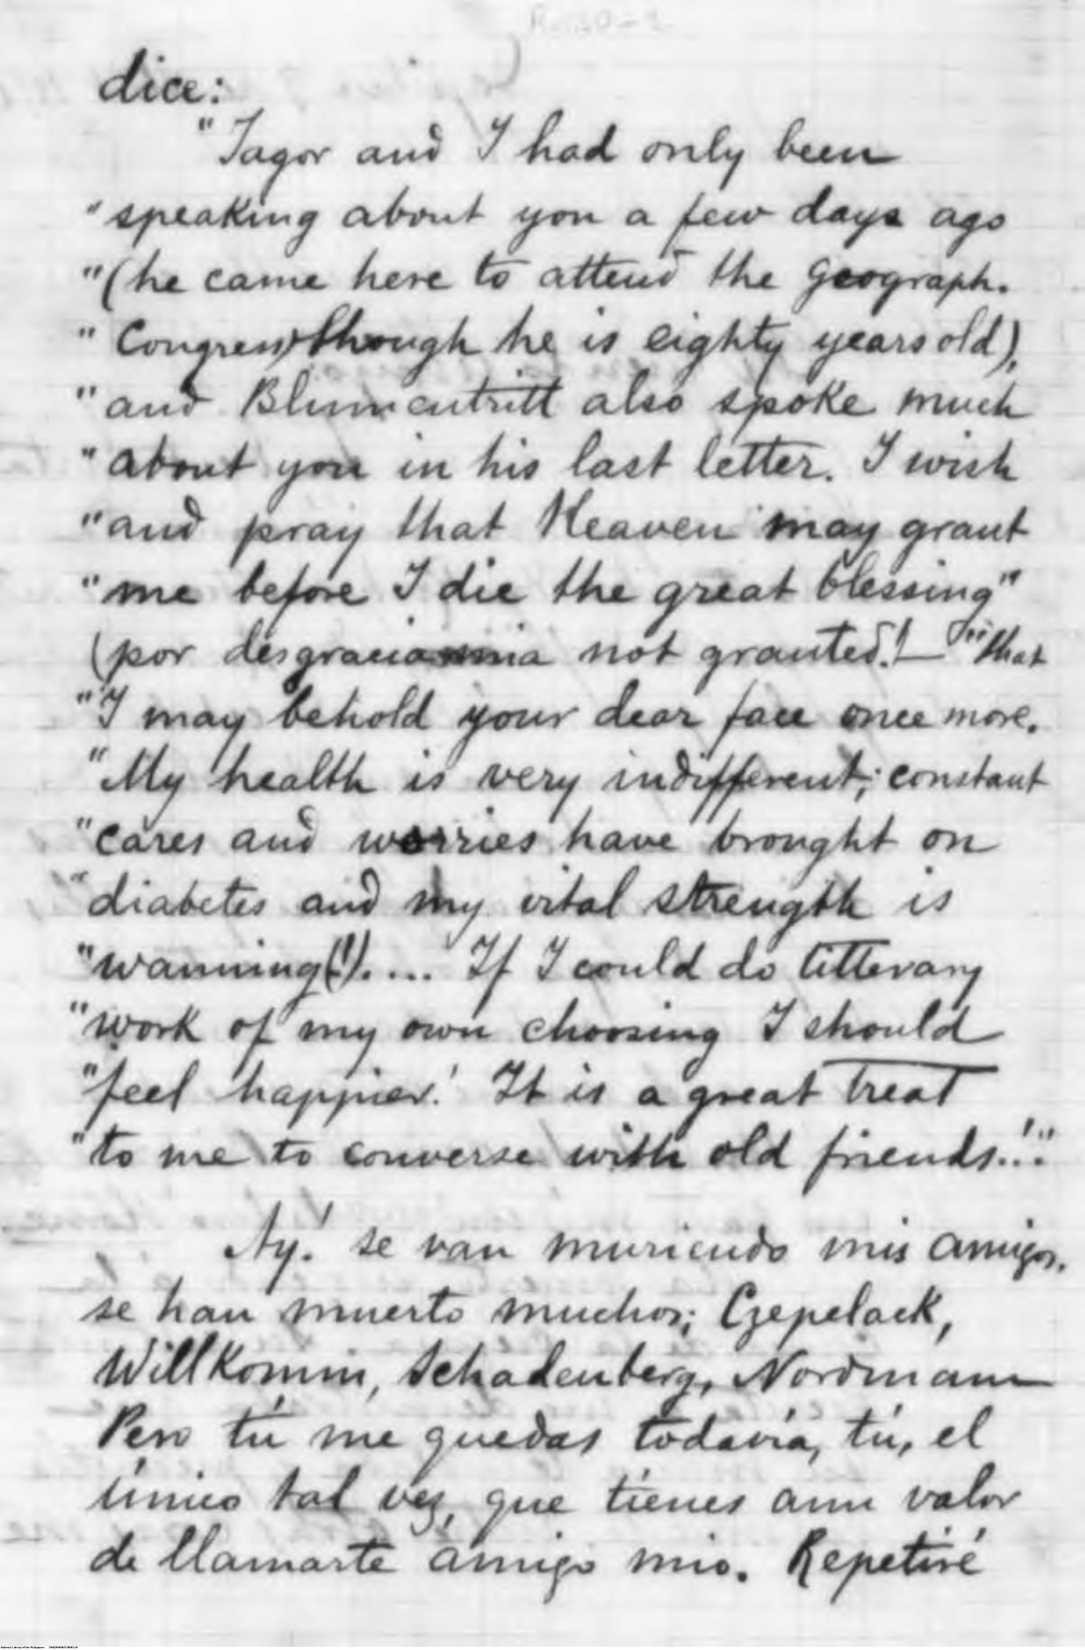 dice:
"Jagor and I had only been
"speaking about you a few days ago
"(he came here to attend the Geograph.
"Congress, though he is eighty years old),
"and Blumentritt also spoke much
"about you in his last letter. I wish
"and pray that Heaven may grant
"me before I die the great blessing"
(por desgracia mia not granted!— "that
"I may behold your dear face once more.
"My health is very indifferent; constant
"cares and worries have brought on
"diabetes and my vital strength is
"wanning(!).... If I could do litterary
"work of my own choosing I should
"feel happier! It is a great treat
"to me to converse with old friends!.."
Ay! se van muriendo mis amigos.
se han muerto muchos; Czepelack,
Willkomm, Schadenberg, Nordmann
Pero tú me quedas todavía, tú, el
único tal vez, que tienes aun valor
de llamarte amigo mio. Repetiré